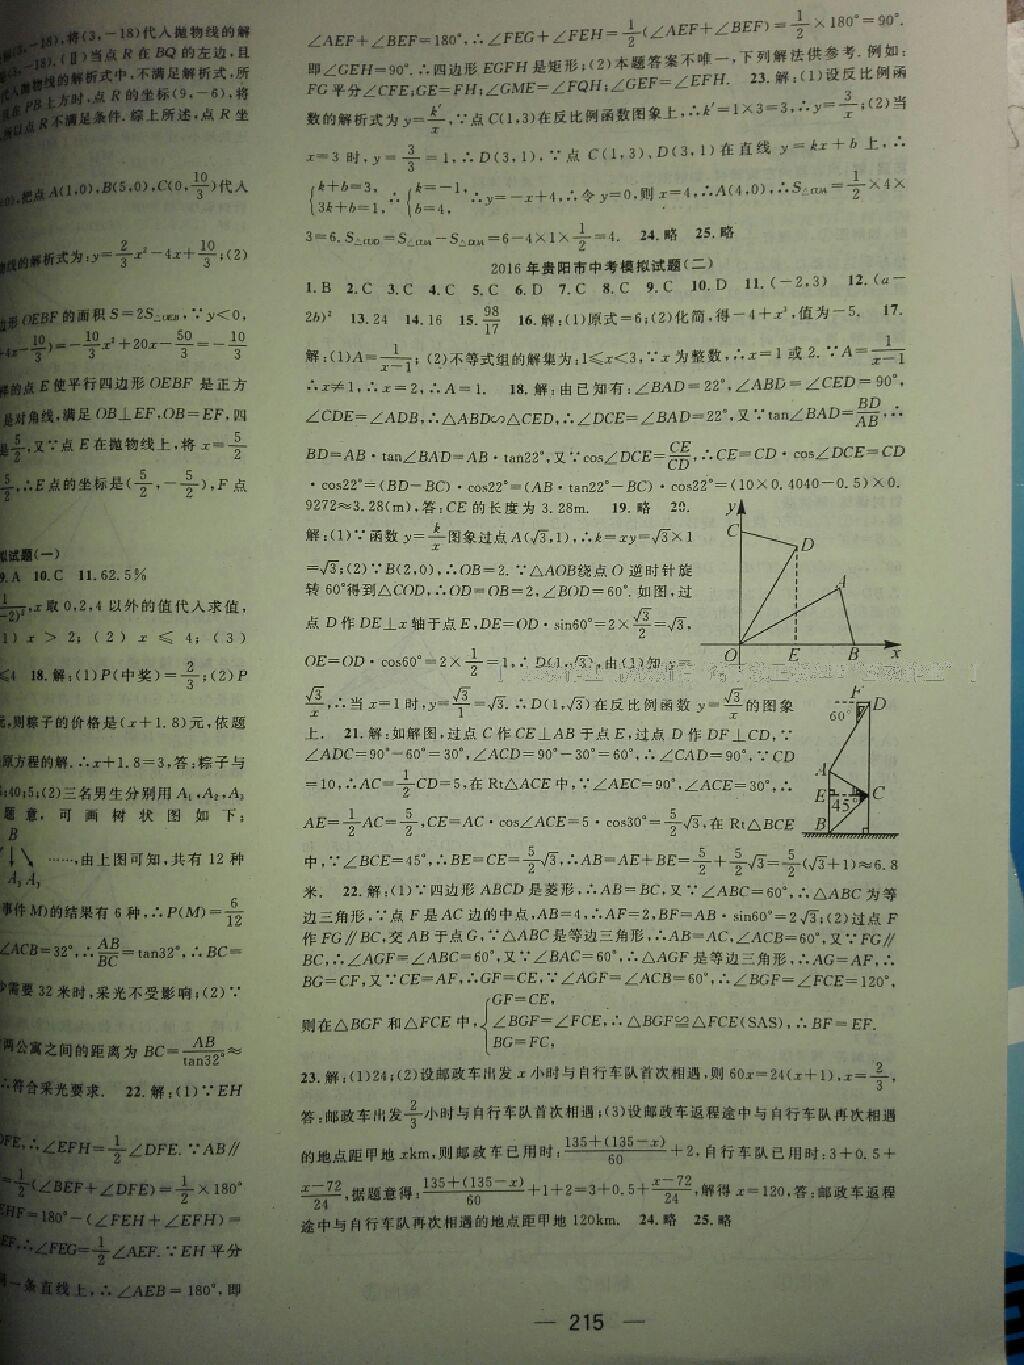 标(3,-18),将(3,-18)代入抛物线的解
(3,-18).(Ⅱ)当点R在BQ的左边,且
代入抛物线的解析式中,不满足解析式,所
在PB上方时,点R的坐标(9,-6),将
所以点R不满足条件.综上所述,点R坐
把点A(1,0),B(5,0),C(0,10/3)代入
物线的解析式为:y=2/3x²-4x+10/3;(2)
边形OEBF的面积S=2S△OEB,∵y<0,
+4x-10/3)=-10/3x²+20x-50/3=-10/3
样的点E使平行四边形OEBF是正方
是对角线,满足OB⊥EF,OB=EF,四
是5/2,又∵点E在抛物线上,将x=5/2
5/2,∴E点的坐标是(5/2,-5/2),F点
拟试题(一)
9.A 10.C 11.62.5%
x取0,2,4以外的值代入求值,
1)x>2;(2)x⩽4;(3)
⩽4 18.解:(1)P(中奖)=2/3;(2)P
元,则粽子的价格是(x+1.8)元,依题
原方程的解.∴x+1.8=3,答:粽子与
40;5;(2)三名男生分别用A₁,A₂,A₃
题意,可画树状图如下:
B
……,由上图可知,共有12种
A₂ A₃
事件M)的结果有6种,∴P(M)=6/12
∠ACB=32°,∴AB/BC=tan32°,∴BC=
少需要32米时,采光不受影响;(2)∵
两公寓之间的距离为BC=AB/tan32°≈
∴符合采光要求. 22.解:(1)∵EH
DFE,∴∠EFH=1/2∠DFE.∵AB∥
=1/2(∠BEF+∠DFE)=1/2×180°
EHF=180°-(∠FEH+∠EFH)=
∴∠FEG=1/2∠AEF.∵EH平分
同一条直线上,∴∠AEB=180°,即
∠AEF+∠BEF=180°,∴∠FEG+∠FEH=1/2(∠AEF+∠BEF)=1/2×180°=90°.
即∠GEH=90°.∴四边形EGFH是矩形;(2)本题答案不唯一,下列解法供参考.例如:
FG平分∠CFE;GE=FH;∠GME=∠FQH;∠GEF=∠EFH. 23.解:(1)设反比例函
数的解析式为y=k′/x,∵点C(1,3)在反比例函数图象上,∴k′=1×3=3,∴y=3/x;(2)当
x=3时,y=3/3=1,∴D(3,1),∵点C(1,3),D(3,1)在直线y=kx+b上,∴
{k+b=3, 3k+b=1, ∴{k=-1, b=4, ∴y=-x+4,∴令y=0,则x=4,∴A(4,0),∴S△COA=1/2×4×
3=6.S△COD=S△COA-S△DOA=6-4×1×1/2=4. 24.略 25.略
2016年贵阳市中考模拟试题(二)
1.B 2.C 3.C 4.C 5.C 6.D 7.C 8.C 9.C 10.D 11.(-2,3) 12.(a-
2b)² 13.24 14.16 15.98/17 16.解:(1)原式=6;(2)化简,得-4+x²,值为-5. 17.
解:(1)A=1/(x-1);(2)不等式组的解集为:1⩽x<3,∵x为整数,∴x=1或2.∵A=1/(x-1)
∴x≠1,∴x=2,∴A=1. 18.解:由已知有:∠BAD=22°,∠ABD=∠CED=90°,
∠CDE=∠ADB,∴△ABD∽△CED,∴∠DCE=∠BAD=22°,又∵tan∠BAD=BD/AB,∴
BD=AB·tan∠BAD=AB·tan22°,又∵cos∠DCE=CE/CD,∴CE=CD·cos∠DCE=CD
·cos22°=(BD-BC)·cos22°=(AB·tan22°-BC)·cos22°=(10×0.4040-0.5)×0.
9272≈3.28(m),答:CE的长度为3.28m. 19.略 20.
解:(1)∵函数y=k/x图象过点A(√3,1),∴k=xy=√3×1
=√3;(2)∵B(2,0),∴OB=2.∵△AOB绕点O逆时针旋
转60°得到△COD,∴OD=OB=2,∠BOD=60°.如图,过
点D作DE⊥x轴于点E,DE=OD·sin60°=2×√3/2=√3,
OE=OD·cos60°=2×1/2=1,∴D(1,√3),由(1)知y=
√3/x,∴当x=1时,y=√3/1=√3.∴D(1,√3)在反比例函数y=√3/x的图象
上. 21.解:如解图,过点C作CE⊥AB于点E,过点D作DF⊥CD,∵
∠ADC=90°-60°=30°,∠ACD=90°-30°=60°,∴∠CAD=90°.∵CD
=10,∴AC=1/2CD=5,在Rt△ACE中,∵∠AEC=90°,∠ACE=30°,∴
AE=1/2AC=5/2,CE=AC·cos∠ACE=5·cos30°=5/2√3,在Rt△BCE
中,∵∠BCE=45°,∴BE=CE=5/2√3,∴AB=AE+BE=5/2+5/2√3=5/2(√3+1)≈6.8
米. 22.解:(1)∵四边形ABCD是菱形,∴AB=BC,又∵∠ABC=60°,∴△ABC为等
边三角形,∵点F是AC边的中点,AB=4,∴AF=2,BF=AB·sin60°=2√3;(2)过点F
作FG∥BC,交AB于点G,∵△ABC是等边三角形,∴AB=AC,∠ACB=60°,又∵FG∥
BC,∴∠AGF=∠ABC=60°,又∵∠BAC=60°,∴△AGF是等边三角形,∴AG=AF,∴
BG=CF,又∵CE=AF,∴GF=CE,∵∠AGF=∠ACB=60°,∴∠BGF=∠FCE=120°,
则在△BGF和△FCE中,{GF=CE, ∠BGF=∠FCE, BG=FC, ∴△BGF≌△FCE(SAS),∴BF=EF.
23.解:(1)24;(2)设邮政车出发x小时与自行车队首次相遇,则60x=24(x+1),x=2/3,
答:邮政车出发2/3小时与自行车队首次相遇;(3)设邮政车返程途中与自行车队再次相遇
的地点距甲地xkm,则邮政车已用时:(135+(135-x))/60+2,自行车队已用时:3+0.5+
(x-72)/24,据题意得:(135+(135-x))/60+1+2=3+0.5+(x-72)/24,解得x=120,答:邮政车返程
途中与自行车队再次相遇的地点距甲地120km. 24.略 25.略
y
C
D
A
O E B x
F D
60°
A
E 45° C
B
— 215 —